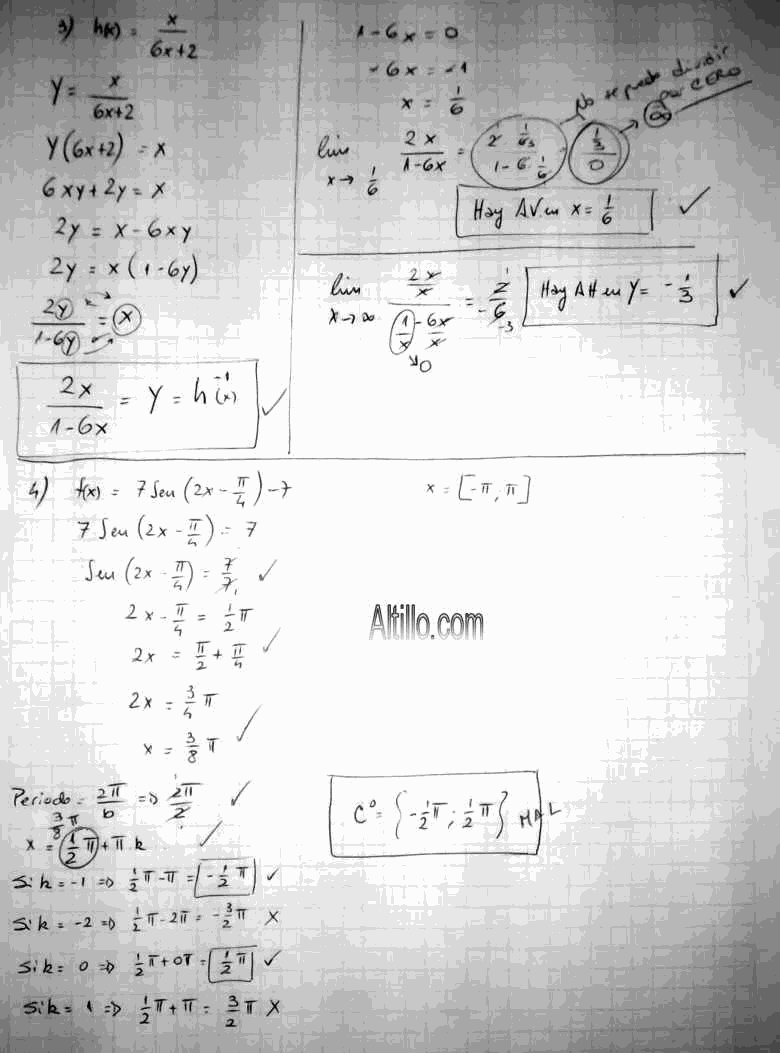 3) h(x) = x/(6x+2)
Y = x/(6x+2)
Y(6x+2) = x
6xy + 2y = x
2y = x - 6xy
2y = x(1-6y)
2y/(1-6y) = x
2x/(1-6x) = Y = h⁻¹(x) ✓
1-6x = 0
-6x = -1
x = 1/6
No se puede dividir
por CERO
lim x→1/6 2x/(1-6x) = (2 · 1/6 3)/(1-6 · 1/6) = (1/3)/0 → ∞
Hay AV en x = 1/6 ✓
lim x→∞ (2x/x)/(1/x - 6x/x) = 2/-6 1 -3
→0
Hay AH en Y = -1/3 ✓
4) f(x) = 7 Sen (2x - π/4) - 7
x = [-π, π]
7 Sen (2x - π/4) = 7
Sen (2x - π/4) = 7/7 1 ✓
2x - π/4 = 1/2 π
2x = π/2 + π/4 ✓
2x = 3/4 π
x = 3/8 π ✓
Altillo.com
Periodo = 2π/b => 2π/2 1 ✓
3/8 π
x = 1/2 π + π k ✓
Si k = -1 => 1/2 π - π = -1/2 π ✓
Si k = -2 => 1/2 π - 2π = -3/2 π X
Si k = 0 => 1/2 π + 0π = 1/2 π ✓
Si k = 1 => 1/2 π + π = 3/2 π X
C⁰ = {-1/2 π ; 1/2 π} MAL